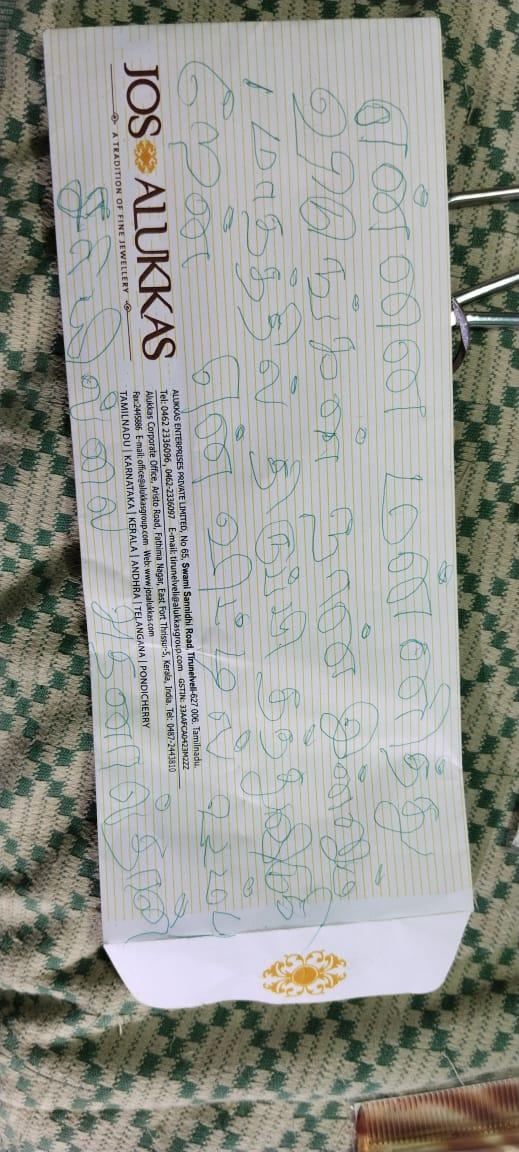 என்னை மன்னித்து
விடுங்கள் நான் இன்னும்
1 மாதத்தில் திருப்பி தந்துவிடுகி
றேன் என் வீட்டில் உடம்பு
சரியில்லை அதனால்தான்
JOS ALUKKAS
A TRADITION OF FINE JEWELLERY
ALUKKAS ENTERPRISES PRIVATE LIMITED, No 65, Swami Sannidhi Road, Tirunelveli-627 006. Tamilnadu.
Tel: 0462 2336096, 0462-2336097 E-mail: tirunelveli@alukkasgroup.com GSTIN: 33AAFCA0423M2ZZ
Alukkas Corporate Office, Aristo Road, Fathima Nagar, East Fort Thrissur-5, Kerala, India. Tel: 0487-2443810
Fax:2445886 E-mail: office@alukkasgroup.com Web: www.josalukkas.com
TAMILNADU | KARNATAKA | KERALA | ANDHRA | TELANGANA | PONDICHERRY